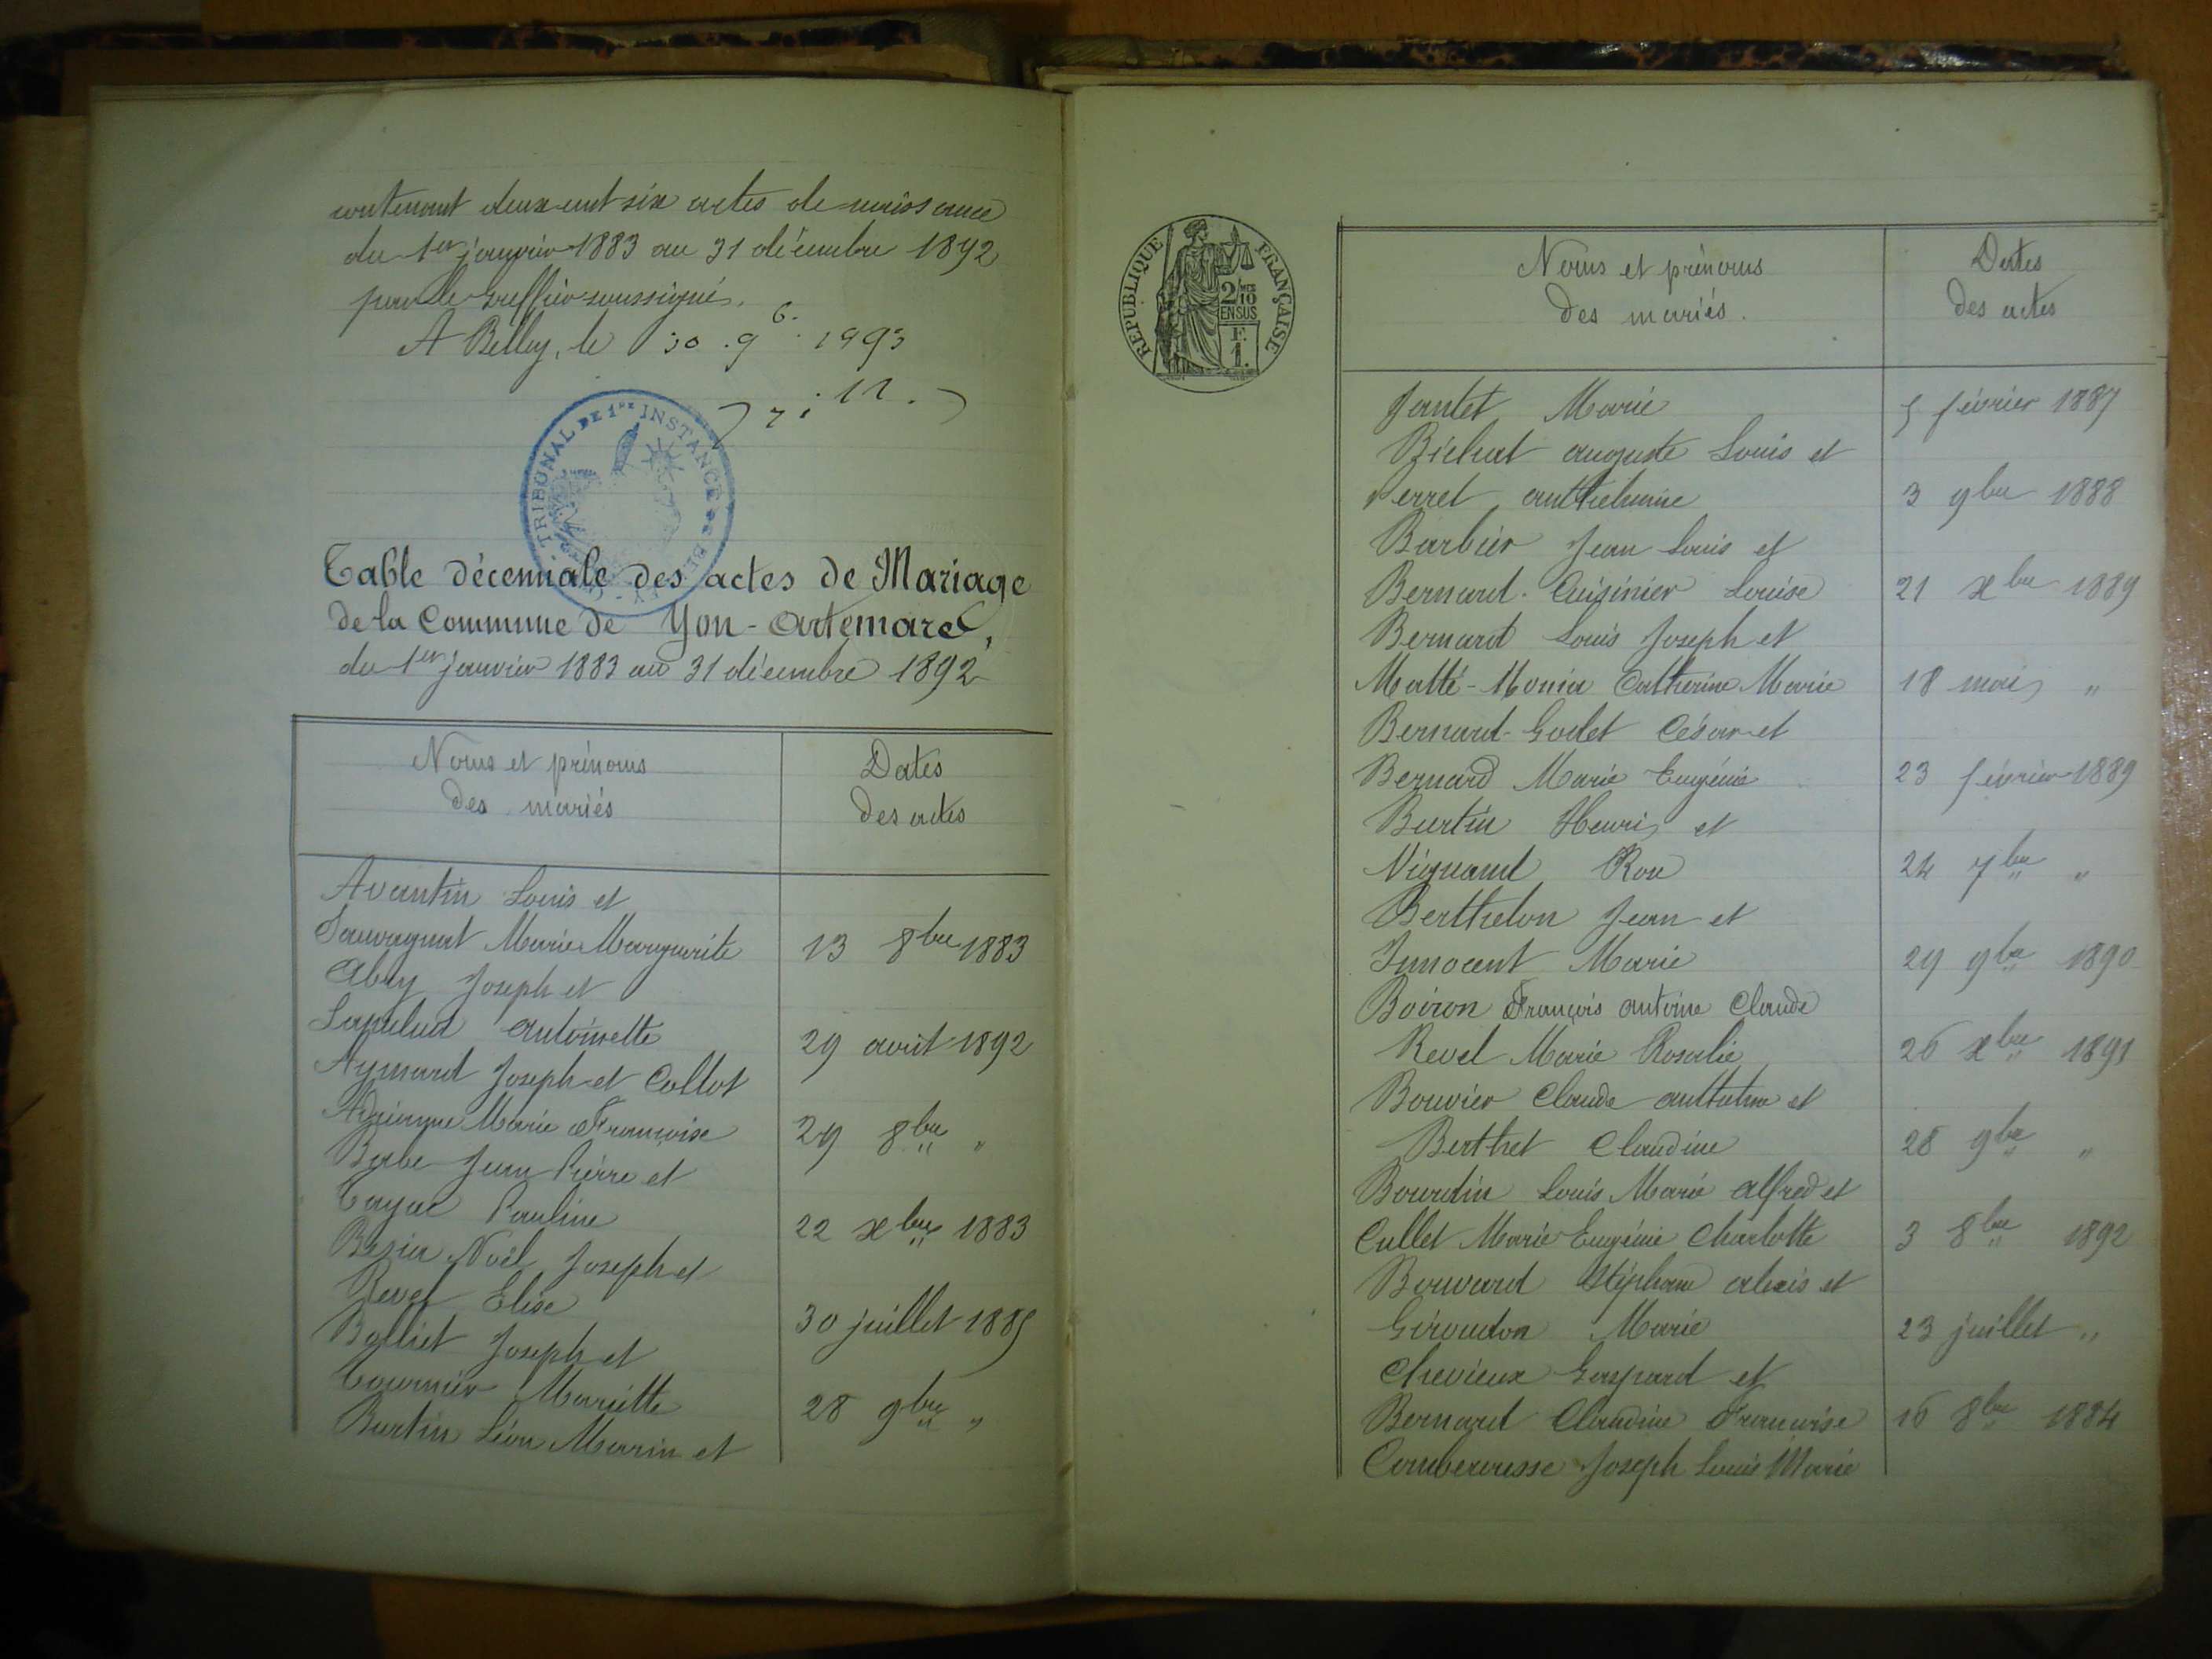 contenant deux cent six actes de naissance
du 1er janvier 1883 au 31 décembre 1892
par le Greffier soussigné.
A Belley, le 30 . 9b. 1893
TRIBUNAL DE 1RE INSTANCE DE BELLEY
Table décennale des actes de Mariage
de la Commune de Yon-Artemare,
du 1er janvier 1883 au 31 décembre 1892
Noms et prénoms
des mariés
Dates
des actes
Avantin Louis et
Sauvaynat Marie Marguerite 13 8bre 1883
Abry Joseph et
Antoinette 29 avril 1892
Aymard Joseph et Collot
Marie Françoise 29 8bre "
Barbe Jean Pierre et
Pauline 22 xbre 1883
Bezin Noël Joseph et
Revel Elise 30 juillet 1885
Balliet Joseph et
Tournier Mariette 28 9bre "
Burtin Léon Marin et
REPUBLIQUE FRANÇAISE
2/10 EN SUS
F.
1.
Noms et prénoms
des mariés.
Dates
des actes
Jantet Marie 5 février 1887
Béchut auguste Louis et
Perret anthelmine 3 9bre 1888
Barbier Jean Louis et
Bernard-Cuisinier Louise 21 xbre 1889
Bernard Louis Joseph et
Catherine Marie 18 mai "
Bernard-Godet César et
Bernard Marie Eugénie 23 février 1889
Burtin Henri et
Vignand Rose 24 7bre "
Berthelon Jean et
Innocent Marie 29 9bre 1890
Boiron François antoine Claude
Revel Marie Rosalie 26 xbre 1891
Bouvier Claude anthelme et
Berthet Claudine 28 9bre "
Bourdin Louis Marie alfred et
Cullet Marie Eugénie Charlotte 3 8bre 1892
Bouvard Stéphane alexis et
Giroudon Marie 23 juillet "
Chevieux Gaspard et
Bernard Claudine Françoise 16 8bre 1884
Comberousse Joseph Louis Marie